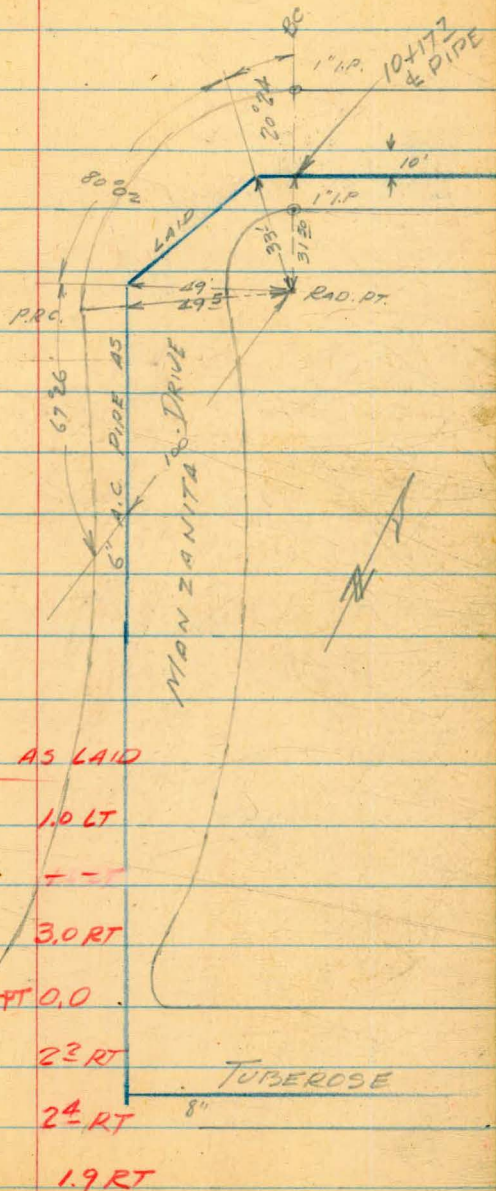 BC
1" I.P.
10+17²
℄ PIPE
20°24'
10'
80°02
1" I.P
LAID
33'
31 50
49'
49 5
RAD. PT.
P.R.C.
67°26'
6" A.C. PIPE AS
MANZANITA DRIVE
N
AS LAID
1.0 LT
3.0 RT
PT 0.0
2 3 RT
TUBEROSE
8"
2 4 RT
1.9 RT